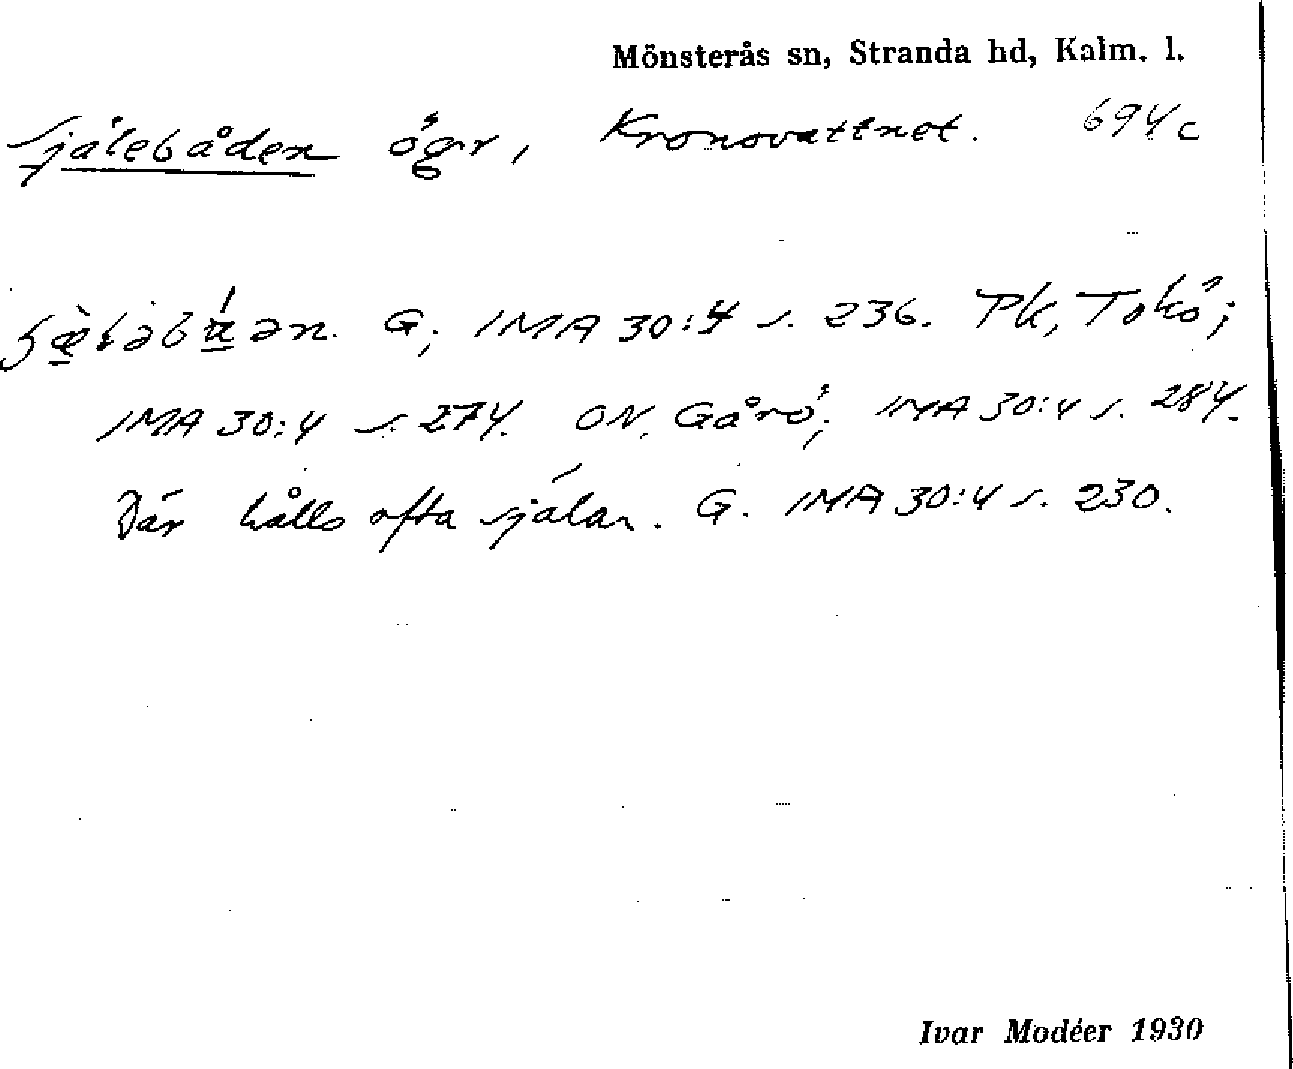 Mönsterås sn, Stranda hd, Kalm. l.
Själebåden ögr, Kronovattnet. 694c
G; IMA 30:4 s. 236. Pk, Tokö;
IMA 30:4 s. 274. ON, Gårö; IMA 30:4 s. 284.
Där hålls ofta själar. G. IMA 30:4 s. 230.
Ivar Modéer 1930